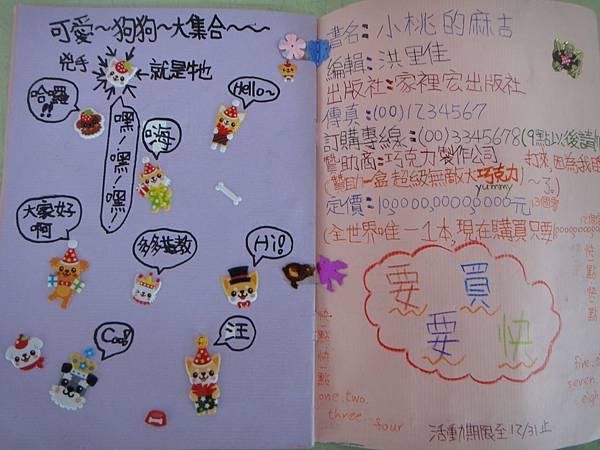 可愛~狗狗~大集合~~~
兇手
←就是牠
哈囉!!
Hello~
嘿!嘿!嘿!
嗨
大家好啊
多多指教
Hi!
Cool!
汪
書名:小桃的麻吉
編輯:洪里佳
出版社:家裡宏出版社
傳真:(00)1234567
訂購專線:(00)3345678(9點以後請
打來,因為我
贊助商:巧克力製作公司
(贊助一盒超級無敵大巧克力
yummy
~了。)
定價:10,000,000,000,000元
13個零
(全世界唯一1本,現在購買只要
要買
要快
快一點快一點
快一點快一點
one.two.
three. four
five.
seven.
eigh
活動期限至12/31止